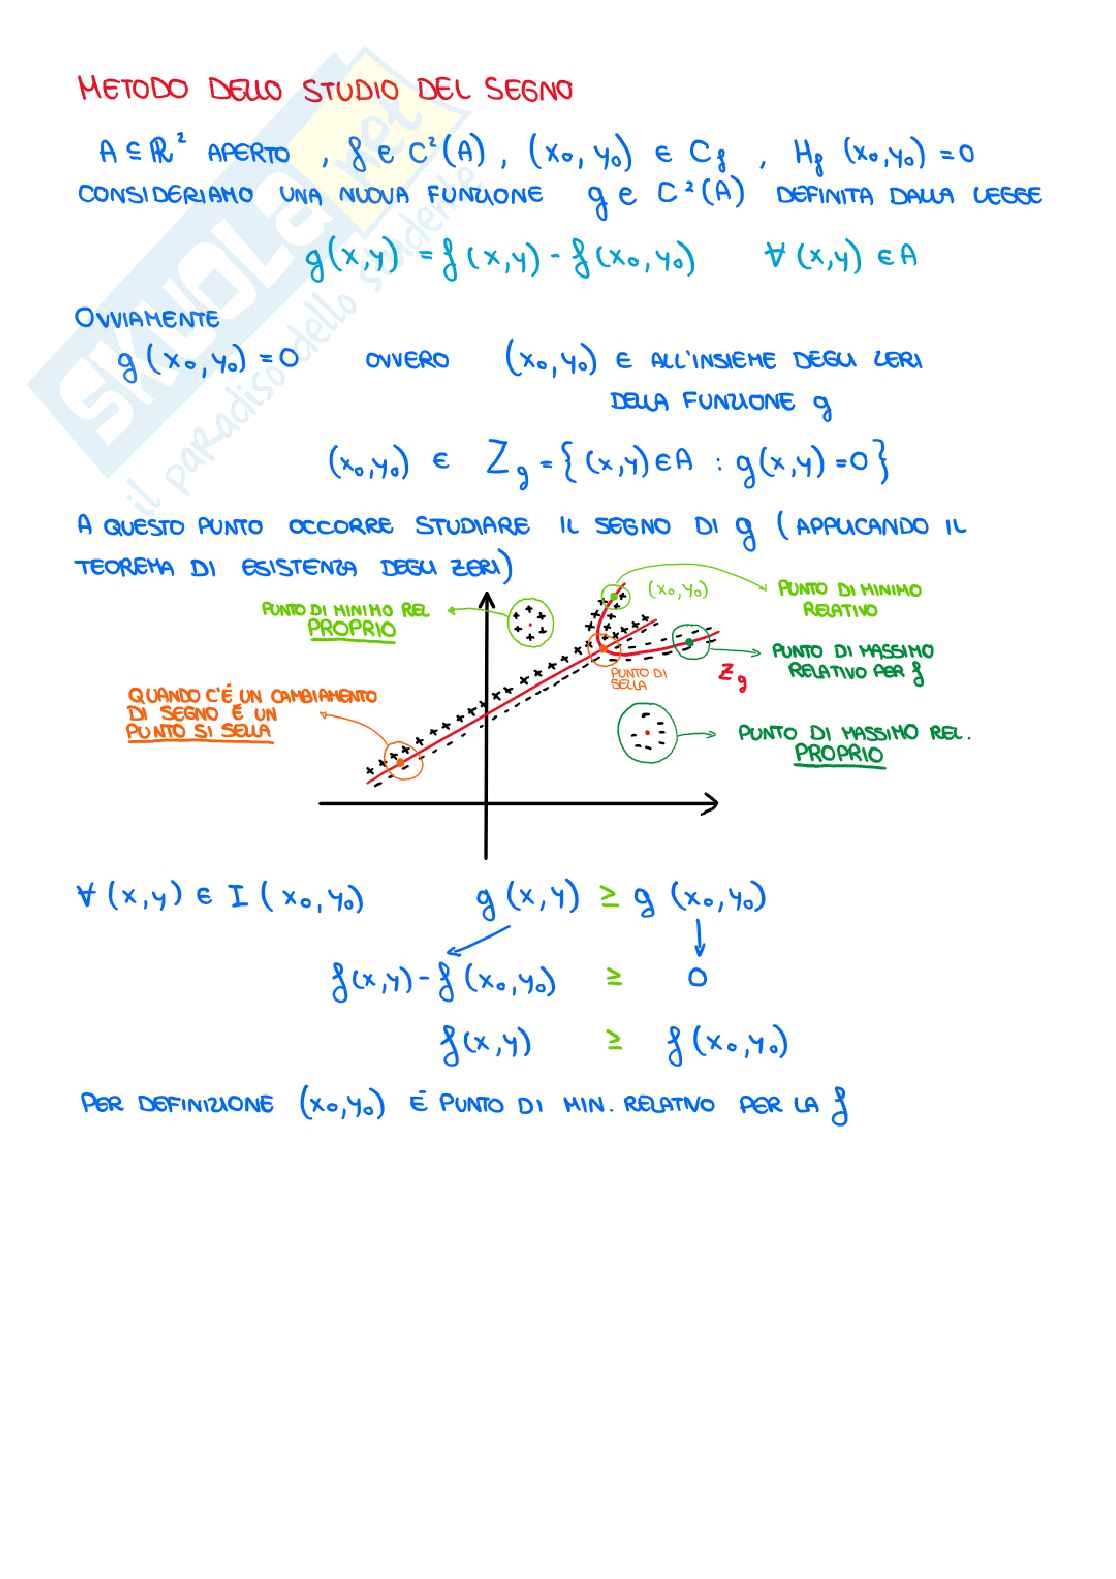 METODO DELLO STUDIO DEL SEGNO
A ⊆ ℝ² APERTO , f ∈ C²(A) , (x₀, y₀) ∈ C_f , H_f (x₀,y₀) = 0
CONSIDERIAMO UNA NUOVA FUNZIONE g ∈ C²(A) DEFINITA DALLA LEGGE
g(x,y) = f(x,y) - f(x₀,y₀) ∀(x,y) ∈ A
OVVIAMENTE
g(x₀,y₀) = 0 OVVERO (x₀,y₀) ∈ ALL'INSIEME DEGLI ZERI
DELLA FUNZIONE g
(x₀,y₀) ∈ Z_g = {(x,y) ∈ A : g(x,y) = 0}
A QUESTO PUNTO OCCORRE STUDIARE IL SEGNO DI g (APPLICANDO IL
TEOREMA DI ESISTENZA DEGLI ZERI)
PUNTO DI MINIMO REL
PROPRIO
(x₀,y₀)
PUNTO DI MINIMO
RELATIVO
PUNTO DI MASSIMO
RELATIVO PER f
PUNTO DI
SELLA
Z_g
QUANDO C'É UN CAMBIAMENTO
DI SEGNO É UN
PUNTO SI SELLA
PUNTO DI MASSIMO REL.
PROPRIO
∀(x,y) ∈ I(x₀,y₀) g(x,y) ≥ g(x₀,y₀)
f(x,y) - f(x₀,y₀) ≥ 0
f(x,y) ≥ f(x₀,y₀)
PER DEFINIZIONE (x₀,y₀) É PUNTO DI MIN. RELATIVO PER LA f
SKUOLA.net
il paradiso dello studente